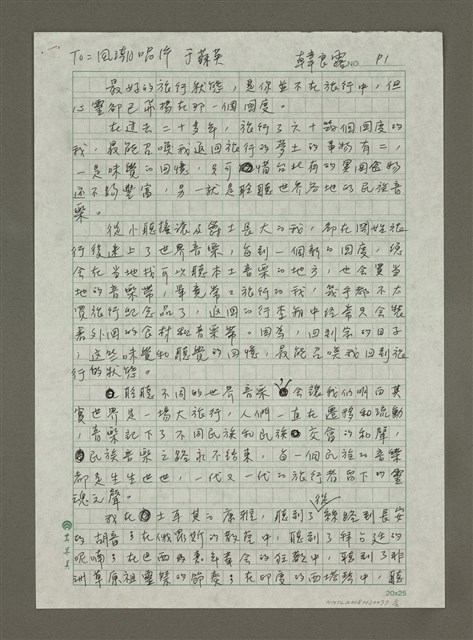 To：風潮唱片 于蘇英 韓良露 NO. P1
最好的旅行狀態，是你並不在旅行中，但
心靈卻已飛揚在那一個國度。
在過去二十多年，旅行了六十幾個國度的
我，最能召喚我返回旅行的夢土的事物有二，
一是味覺的回憶，只可惜台北有的異國食物
還不夠豐富，另一就是聆聽世界各地的民族音
樂。
從小聽搖滾及爵士長大的我，卻在開始旅
行後迷上了世界音樂，每到一個新的國度，總
會在當地找可以聽本土音樂的地方，也會買當
地的音樂帶，畢竟常旅行的我，幾乎都不太
買旅行紀念品了，返回的行李箱中經常只會裝
著外國的食材和音樂帶。因為，回到家的日子
，這些味覺和聽覺的回憶，最能召喚我回到旅
行的狀態。
聆聽不同的世界音樂會讓我們明白其
實世界是一場大旅行，人們一直在遷移和流動
，音樂記下了不同民族和民族交會的和聲，
民族音樂之路永不結束，每一個民族的音樂
都是生生世世，一代又一代的旅行者留下的靈
魂之聲。
我在土耳其的廟裡，聽到了從絲路到長安
的胡音；在俄羅斯的教堂中，聽到了拜占廷的
呢喃；在巴西的嘉年華會的狂歡中，聽到了非
洲草原祖靈祭的節奏；在印度的西塔琴中，聽
20x25